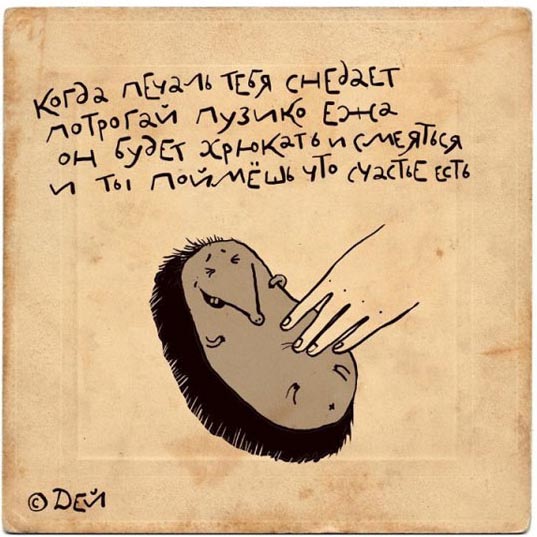 когда печаль тебя снедает
потрогай пузико ежа
он будет хрюкать и смеяться
и ты поймёшь что счастье есть
© Дей